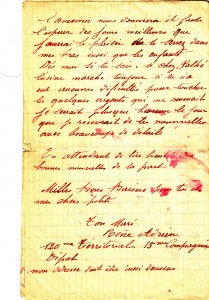 l'avenir nous donnera il faut
l'espoir des jours meilleurs que
j'aurai le plaisir de te serrer dans
mes bras insi que les enfants
Dis moi si tu sai si chez
usine marche toujour si tu n'a
eut aucunes dificultés pour toucher
les quelques argents qui me
je serait plusque heureux le jour
que je recevrait de tes nouvelles
avec beaucoups de details
En attendant de tes
bonnes nouvelles de ta part
Milles Bon Baisers pour toi et
mes chers petits
Ton Mari
René Adrien
130me Territorial 15me Compagnie
Dépot
mon adresse doit etre insi dessus